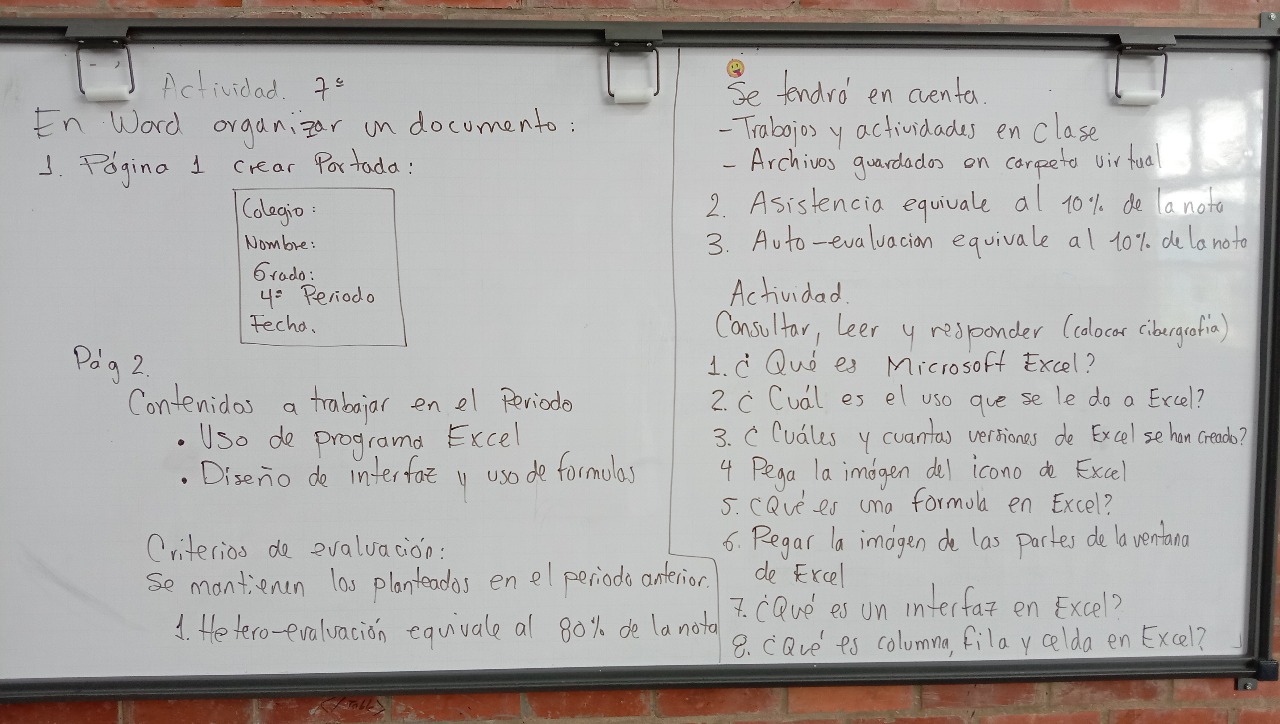 Actividad. 7º
En Word organizar un documento:
1. Página 1 crear Portada:
Colegio:
Nombre:
Grado:
4º Periodo
Fecha.
Pág 2.
Contenidos a trabajar en el Periodo
• Uso de programa Excel
• Diseño de interfaz y uso de formulas
Criterios de evaluación:
Se mantienen los planteados en el periodo anterior.
1. Hetero-evaluación equivale al 80% de la nota
Se tendrá en cuenta.
- Trabajos y actividades en clase
- Archivos guardados en carpeta virtual
2. Asistencia equivale al 10% de la nota
3. Auto-evaluacion equivale al 10% de la nota
Actividad.
Consultar, leer y responder (colocar cibergrafía)
1. ¿Qué es Microsoft Excel?
2. ¿Cuál es el uso que se le da a Excel?
3. ¿Cuáles y cuantas versiones de Excel se han creado?
4 Pega la imágen del icono de Excel
5. ¿Qué es una formula en Excel?
6. Pegar la imágen de las partes de la ventana
de Excel
7. ¿Qué es un interfaz en Excel?
8. ¿Qué es columna, fila y celda en Excel?